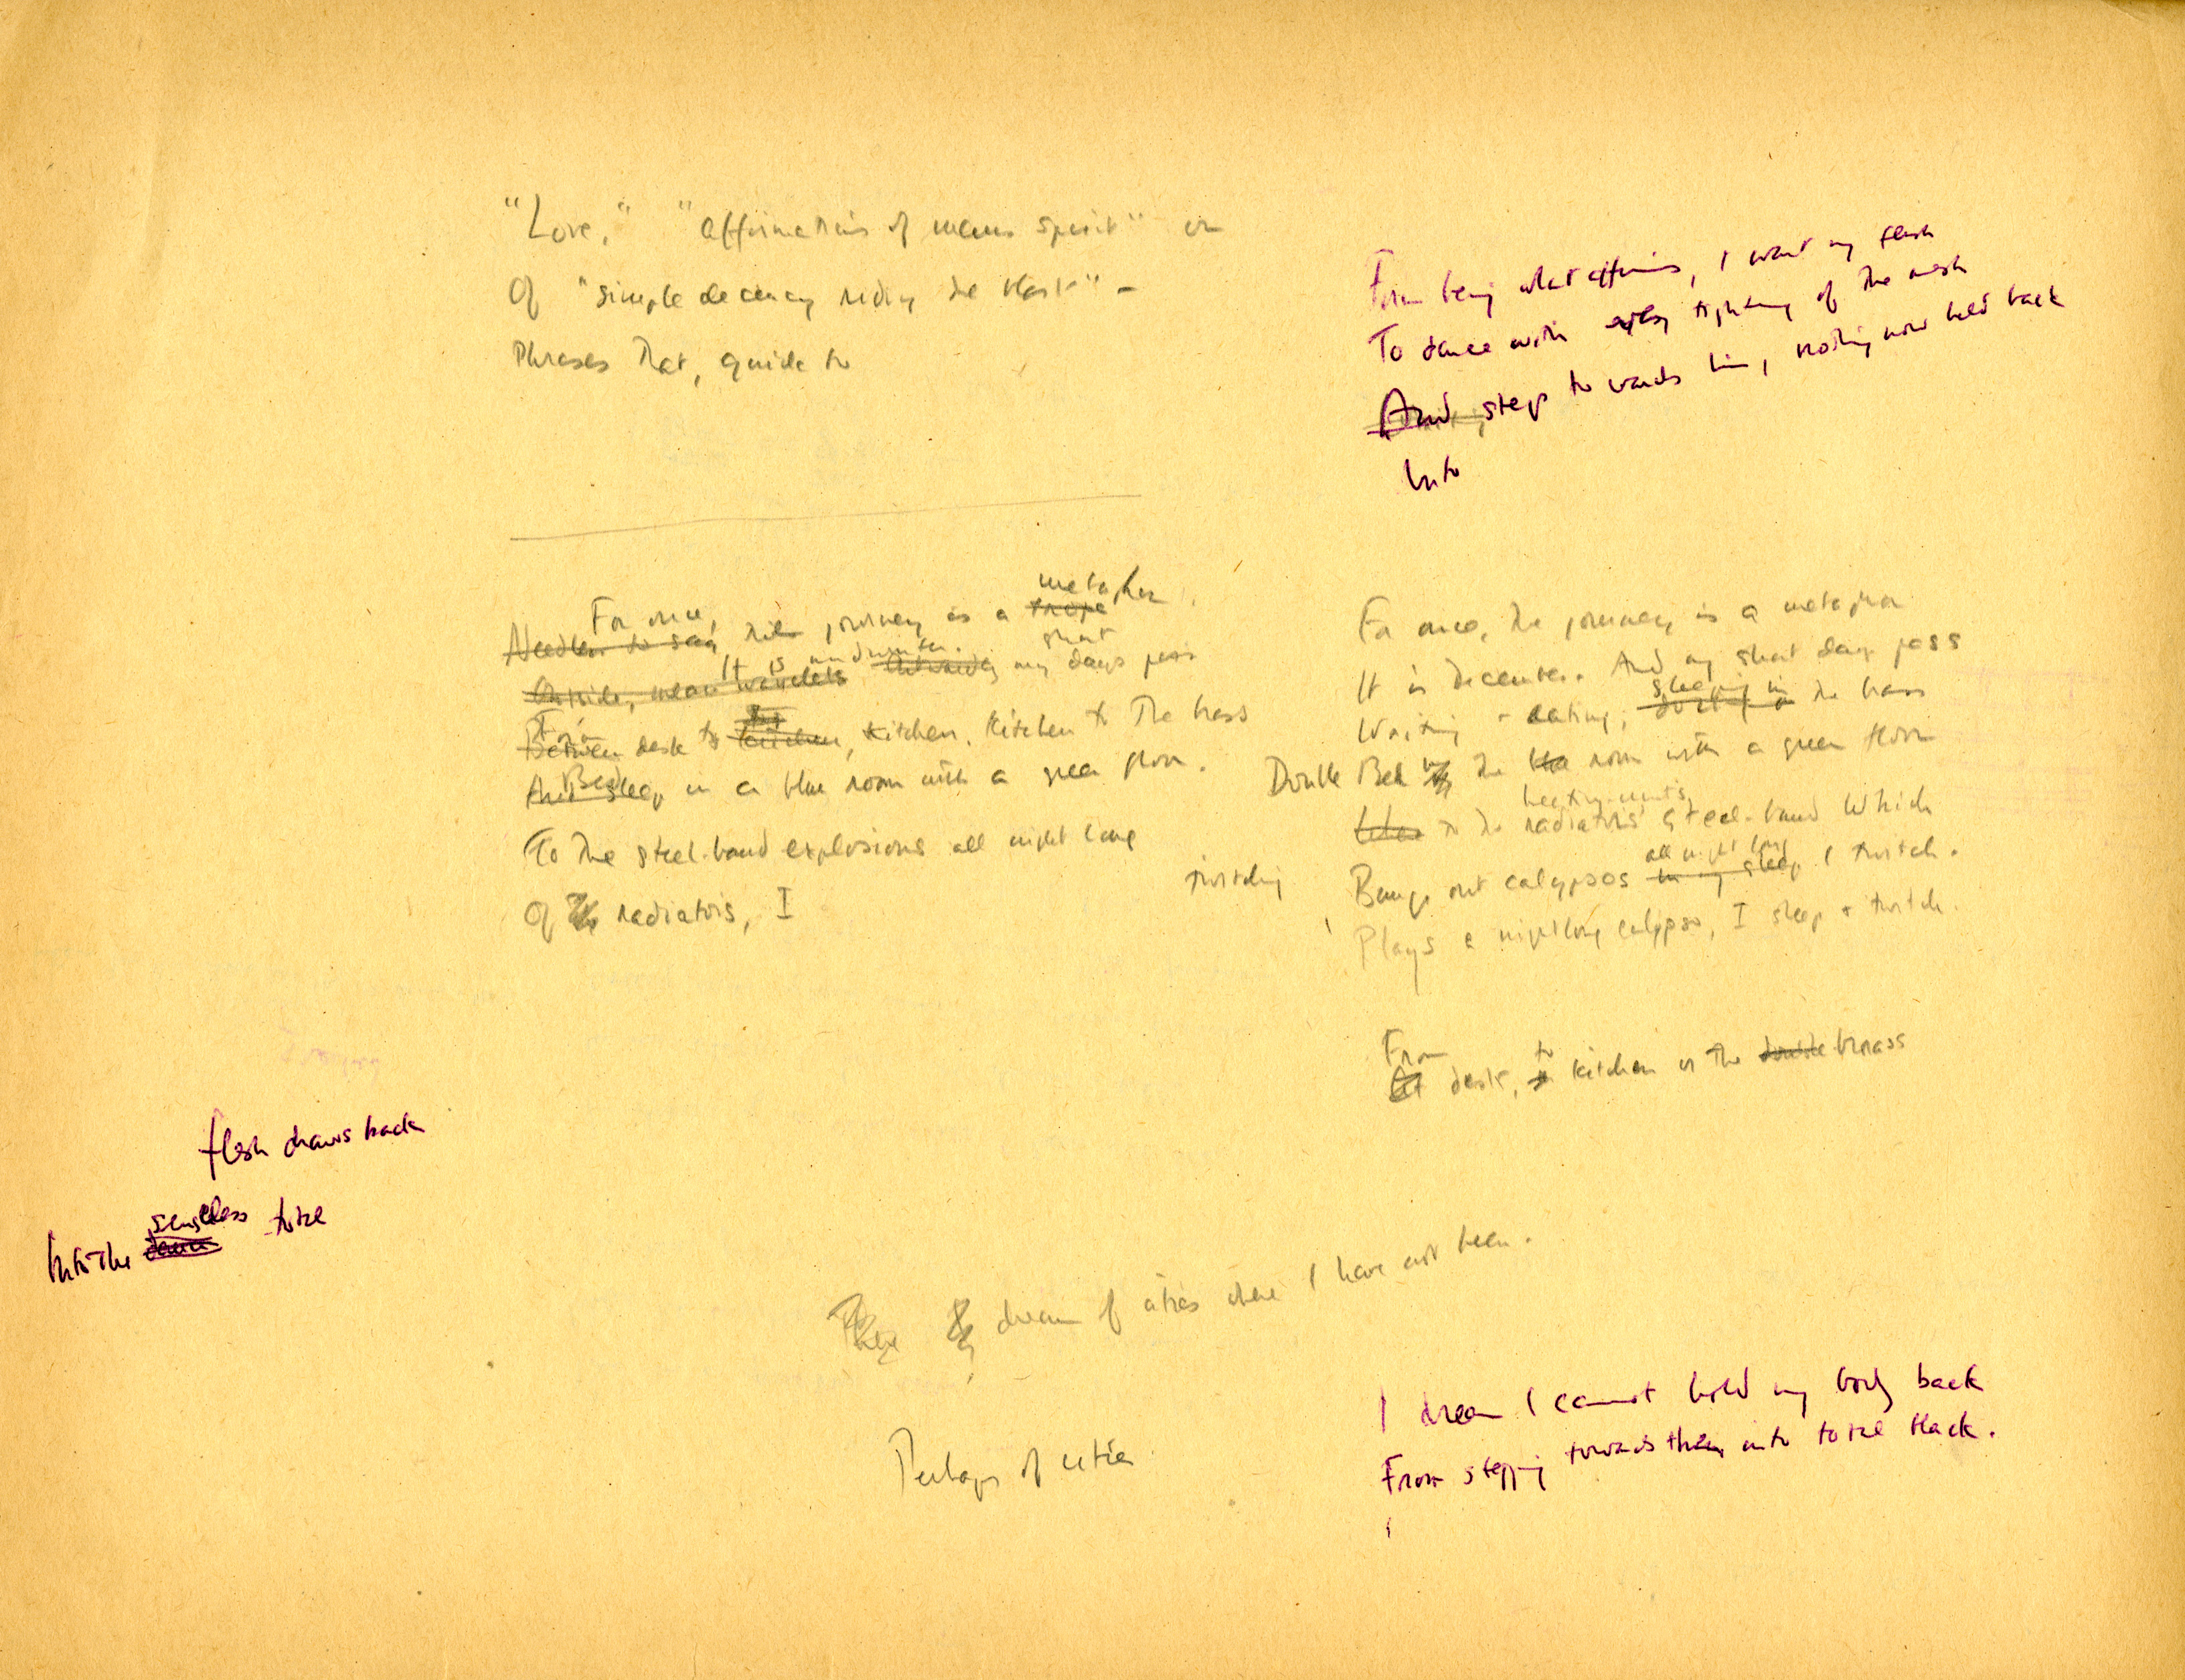 "Love," "affirmations of mans spirit" or
Of "simple decency riding the blast" -
Phrases that, quite to
From being what affirms, I want my flesh
To dance with tightening of the mesh
And step towards him, nothing now held back
Into
metaphor.
For once, trope
Needless to say, this journey is a
It is midwinter. short
Outside, mean wavelets Outwardly my days pass
From
Between desk to kitchen, kitchen. Kitchen to the brass
Bed
And sleep in a blue room with a green floor.
To the steel-band explosions all night long
Of radiators, I
For once, the journey is a metaphor
It is December. And my short days pass
sleeping in
Writing + eating; the brass
Double Bed in the room with a green floor
heating-units
to the radiators' steel-band which
all night long
twitching
Bangs out calypsos in my sleep I twitch.
Plays a nightlong calypso, I sleep + twitch.
From to
At desk, kitchen or the double brass
flesh draws back
senseless
Into the total
dream of cities where I have not been.
Perhaps of cities
I dream I cannot hold my body back
From stepping towards them into total black.
I